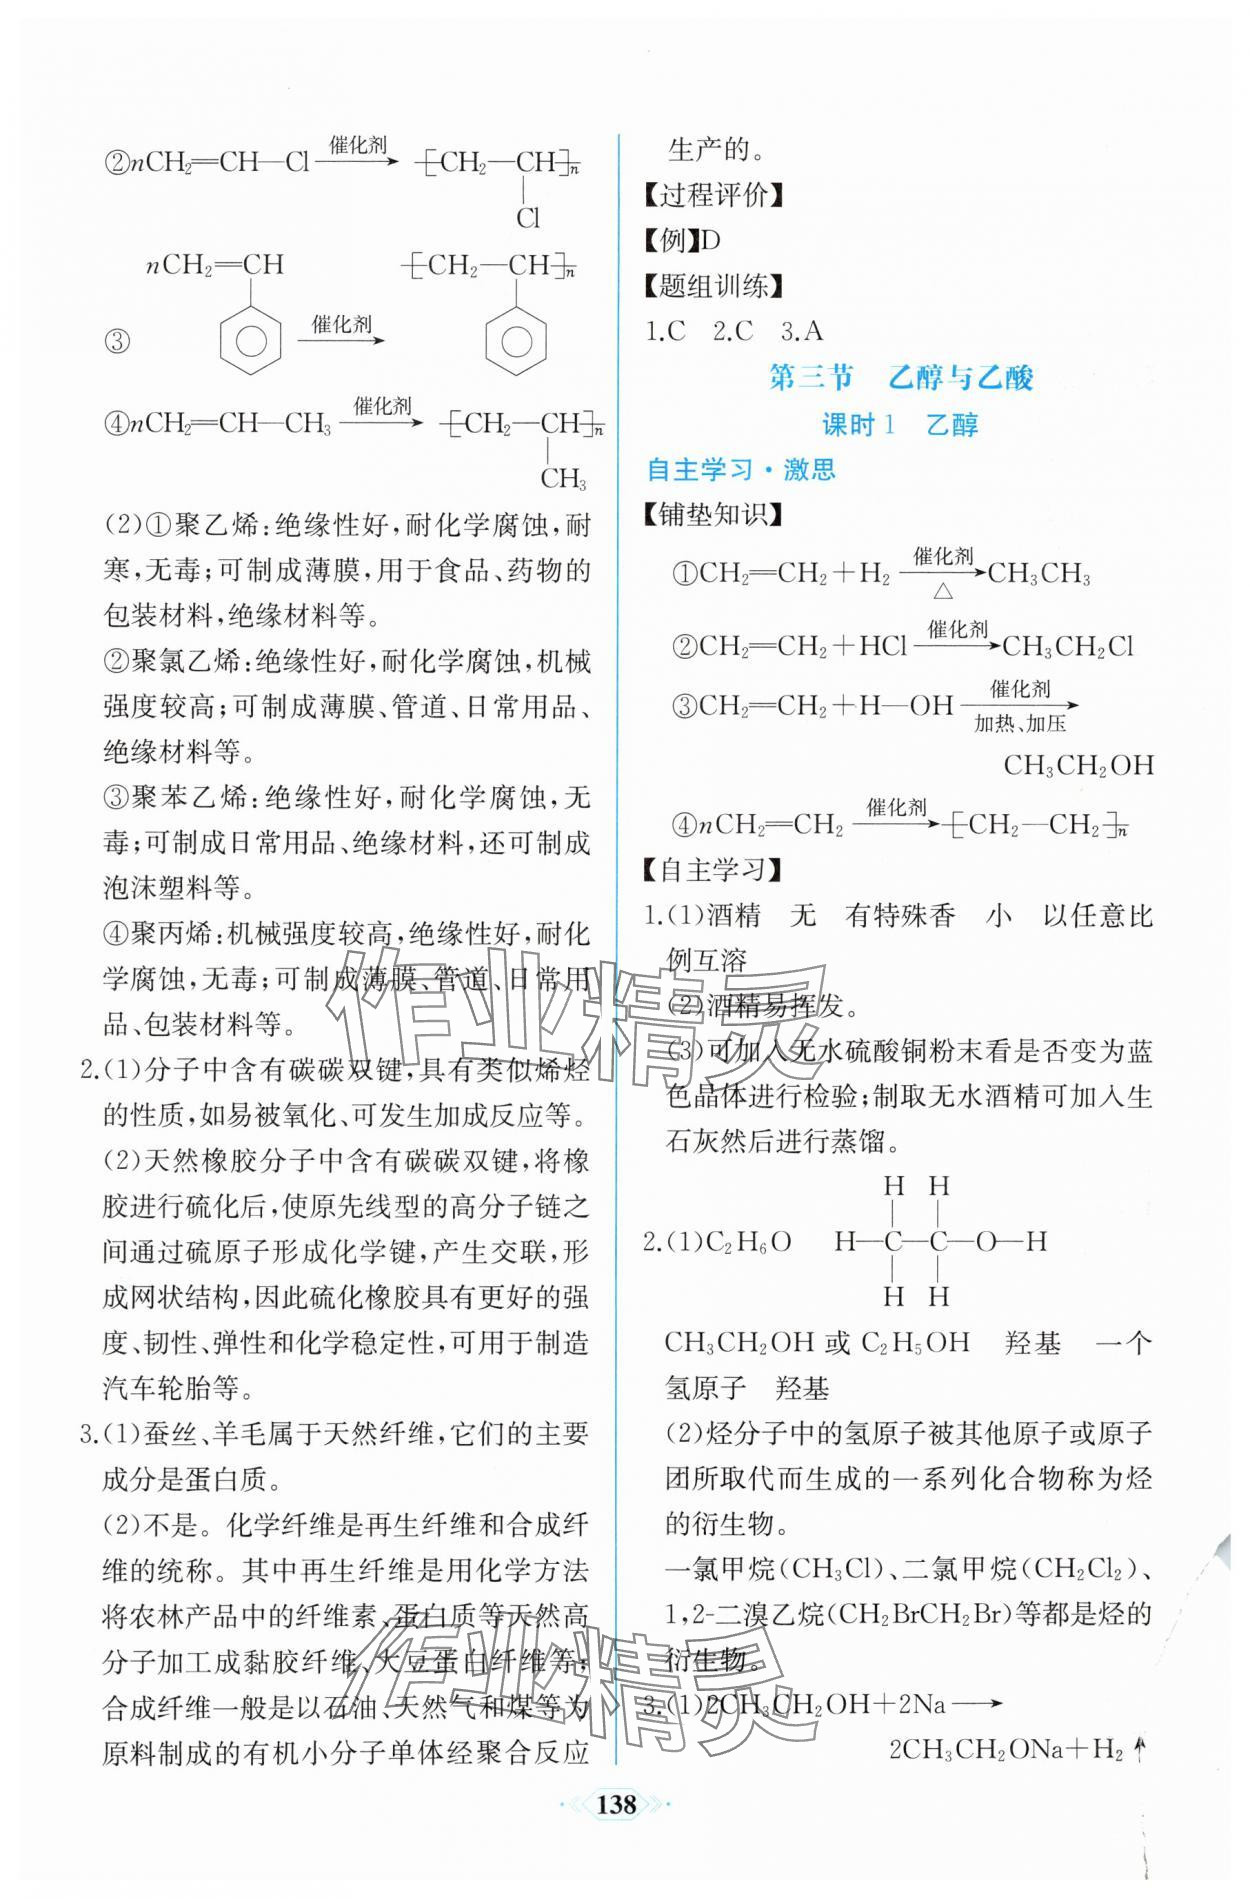 ②nCH₂=CH—Cl 催化剂→ [CH₂—CH]n
Cl
nCH₂=CH [CH₂—CH]n
③ 催化剂→
④nCH₂=CH—CH₃ 催化剂→ [CH₂—CH]n
CH₃
(2)①聚乙烯:绝缘性好,耐化学腐蚀,耐
寒,无毒;可制成薄膜,用于食品、药物的
包装材料,绝缘材料等。
②聚氯乙烯:绝缘性好,耐化学腐蚀,机械
强度较高;可制成薄膜、管道、日常用品、
绝缘材料等。
③聚苯乙烯:绝缘性好,耐化学腐蚀,无
毒;可制成日常用品、绝缘材料,还可制成
泡沫塑料等。
④聚丙烯:机械强度较高,绝缘性好,耐化
学腐蚀,无毒;可制成薄膜、管道、日常用
品、包装材料等。
2.(1)分子中含有碳碳双键,具有类似烯烃
的性质,如易被氧化、可发生加成反应等。
(2)天然橡胶分子中含有碳碳双键,将橡
胶进行硫化后,使原先线型的高分子链之
间通过硫原子形成化学键,产生交联,形
成网状结构,因此硫化橡胶具有更好的强
度、韧性、弹性和化学稳定性,可用于制造
汽车轮胎等。
3.(1)蚕丝、羊毛属于天然纤维,它们的主要
成分是蛋白质。
(2)不是。化学纤维是再生纤维和合成纤
维的统称。其中再生纤维是用化学方法
将农林产品中的纤维素、蛋白质等天然高
分子加工成黏胶纤维、大豆蛋白纤维等;
合成纤维一般是以石油、天然气和煤等为
原料制成的有机小分子单体经聚合反应
生产的。
【过程评价】
【例】D
【题组训练】
1.C 2.C 3.A
第三节 乙醇与乙酸
课时1 乙醇
自主学习·激思
【铺垫知识】
①CH₂=CH₂+H₂ 催化剂→△ CH₃CH₃
②CH₂=CH₂+HCl 催化剂→ CH₃CH₂Cl
③CH₂=CH₂+H—OH 催化剂→加热、加压
CH₃CH₂OH
④nCH₂=CH₂ 催化剂→ [CH₂—CH₂]n
【自主学习】
1.(1)酒精 无 有特殊香 小 以任意比
例互溶
(2)酒精易挥发。
(3)可加入无水硫酸铜粉末看是否变为蓝
色晶体进行检验;制取无水酒精可加入生
石灰然后进行蒸馏。
H H
2.(1)C₂H₆O H—C—C—O—H
H H
CH₃CH₂OH或C₂H₅OH 羟基 一个
氢原子 羟基
(2)烃分子中的氢原子被其他原子或原子
团所取代而生成的一系列化合物称为烃
的衍生物。
一氯甲烷(CH₃Cl)、二氯甲烷(CH₂Cl₂)、
1,2-二溴乙烷(CH₂BrCH₂Br)等都是烃的
衍生物。
3.(1)2CH₃CH₂OH+2Na→
2CH₃CH₂ONa+H₂↑
138
作业精灵
作业精灵